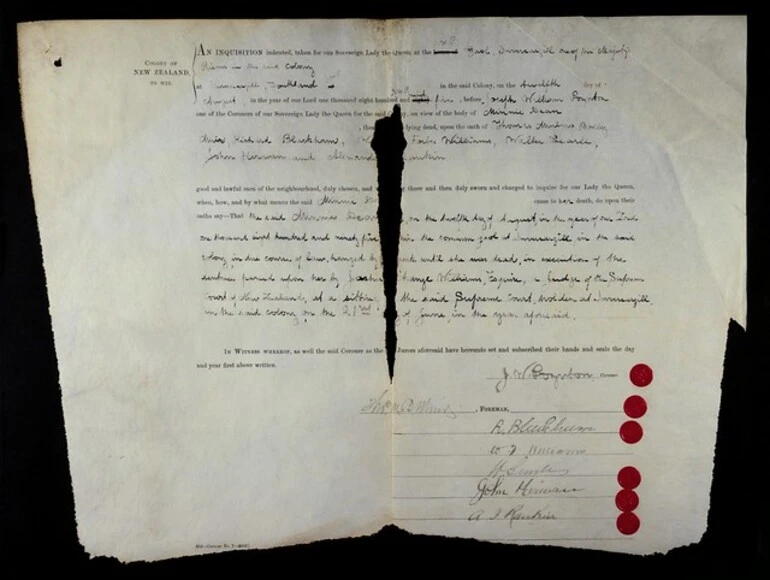 COLONY OF
NEW ZEALAND,
TO WIT.
AN INQUISITION indented, taken for our Sovereign Lady the Queen at the Gaol, Invercargill one of Her Majesty's
Prisons in the said Colony
at Invercargill, Southland in the said Colony, on the twelfth day of
August, in the year of our Lord one thousand eight hundred and five, before, Joseph William Poynton
one of the Coroners of our Sovereign Lady the Queen for the said Colony, on view of the body of Minnie Dean
, then lying dead, upon the oath of Thomas
Richard Blackham, Forbes Williams, Walter Searle,
John Hinman and Alexander Rankin
good and lawful men of the neighbourhood, duly chosen, and there and then duly sworn and charged to inquire for our Lady the Queen,
when, how, and by what means the said Minnie came to her death, do upon their
oaths say—That the said Minnie Dean, on the twelfth day of August, in the year of our Lord
one thousand eight hundred and ninety five in the common gaol at Invercargill in the said
colony, in due course of law, hanged by neck until she was dead, in execution of the
sentence passed upon her by Joshua Strange Williams, Esquire, a Judge of the Supreme
Court of New Zealand, at a sitting the said Supreme Court, holden at Invercargill,
in the said colony on the 21st of June, in the year aforesaid.
IN WITNESS WHEREOF, as well the said Coroner as the Jurors aforesaid have hereunto set and subscribed their hands and seals the day
and year first above written.
J. W. Poynton, Coroner
, FOREMAN,
R. Blackham
W. F. Williams
W. Searle
John Hinman
A. J. Rankin